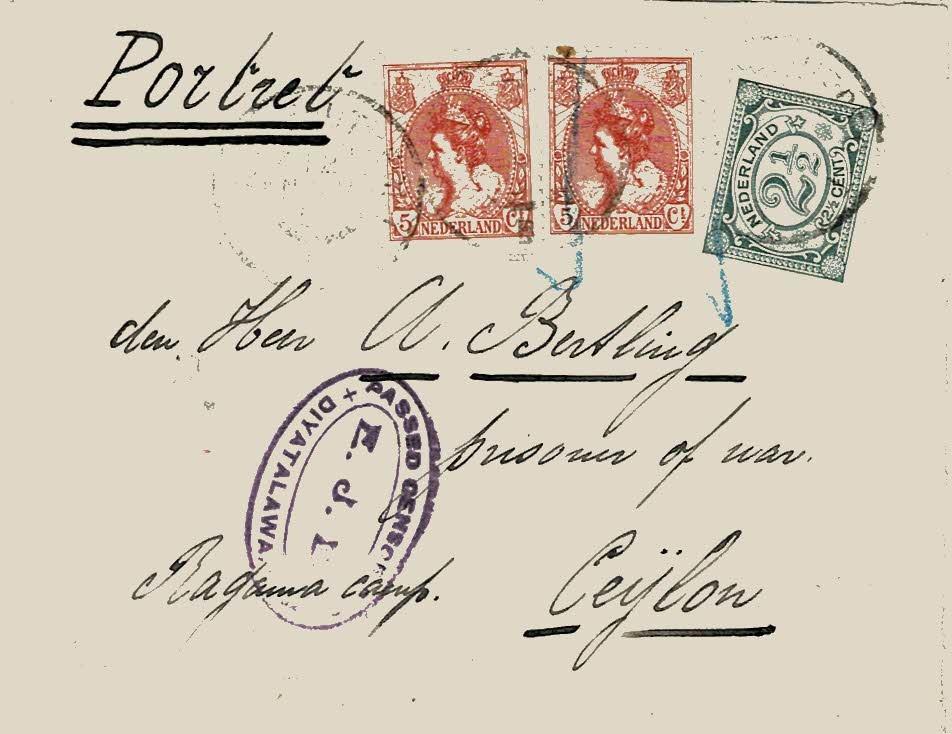 Portret
5 Ct
NEDERLAND
5 Ct
NEDERLAND
NEDERLAND
2½
(2½ CENT)
den Heer A. Bertling
prisoner of war.
PASSED CENSOR
DIYATALAWA
E. J.
Ragama camp.
Ceÿlon